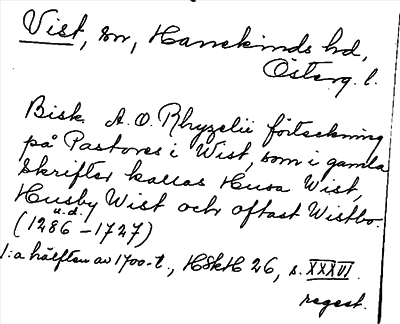 Vist, sn, Hanekinds hd,
Österg. l.
Bisk. A. O. Rhyzelii förteckning
på Pastores i Wist, som i gamla
Skrifter kallas Husa Wist,
Husby Wist och oftast Wistbo.
u.d.
(1286-1727)
1:a hälften av 1700-t., HSkH 26, s. XXXVI.
regest.